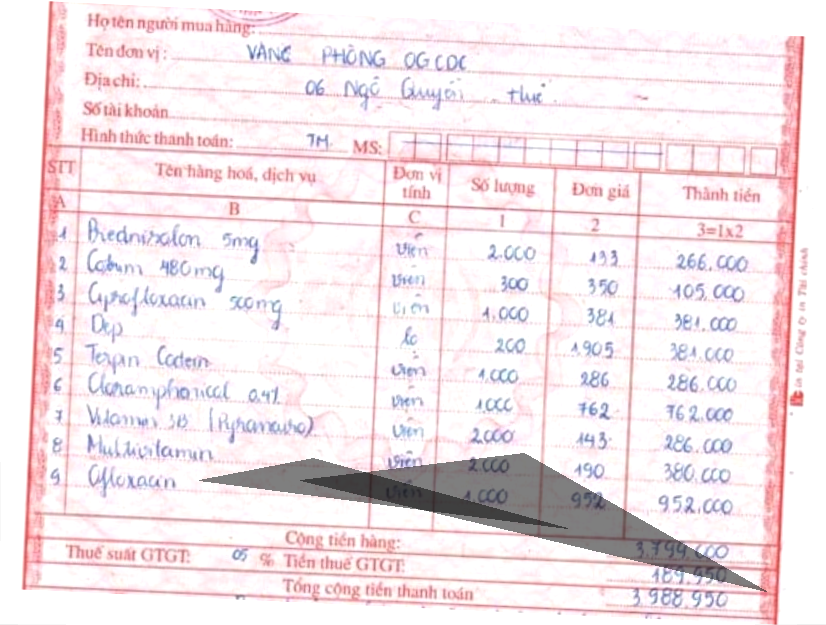 Họ tên người mua hàng:
Tên đơn vị: VĂNG PHÒNG OGCDC
Địa chỉ: 06 Ngô Quyền - Huế.
Số tài khoản
Hình thức thanh toán: TM. MS:
STT Tên hàng hoá, dịch vụ Đơn vị tính Số lượng Đơn giá Thành tiền
A B C 1 2 3=1x2
1 Prednisalon 5mg Viên 2.000 133 266.000
2 Cotrum 480mg Viên 300 350 105.000
3 Ciprofloxacin 500mg Viên 1.000 381 381.000
4 Dep lo 200 1905 381.000
5 Terpin Codein Viên 1.000 286 286.000
6 Cloramphenical 0,4% Viên 1.000 762 762.000
7 Vitamin 3B Viên 2.000 143 286.000
8 Multivitamin Viên 2.000 190 380.000
9 Ofloxacin Viên 1.000 952 952.000
Cộng tiền hàng: 3.799.000
Thuế suất GTGT: 05 % Tiền thuế GTGT: 189.950
Tổng cộng tiền thanh toán 3.988.950
in tại Công ty in Tài chính